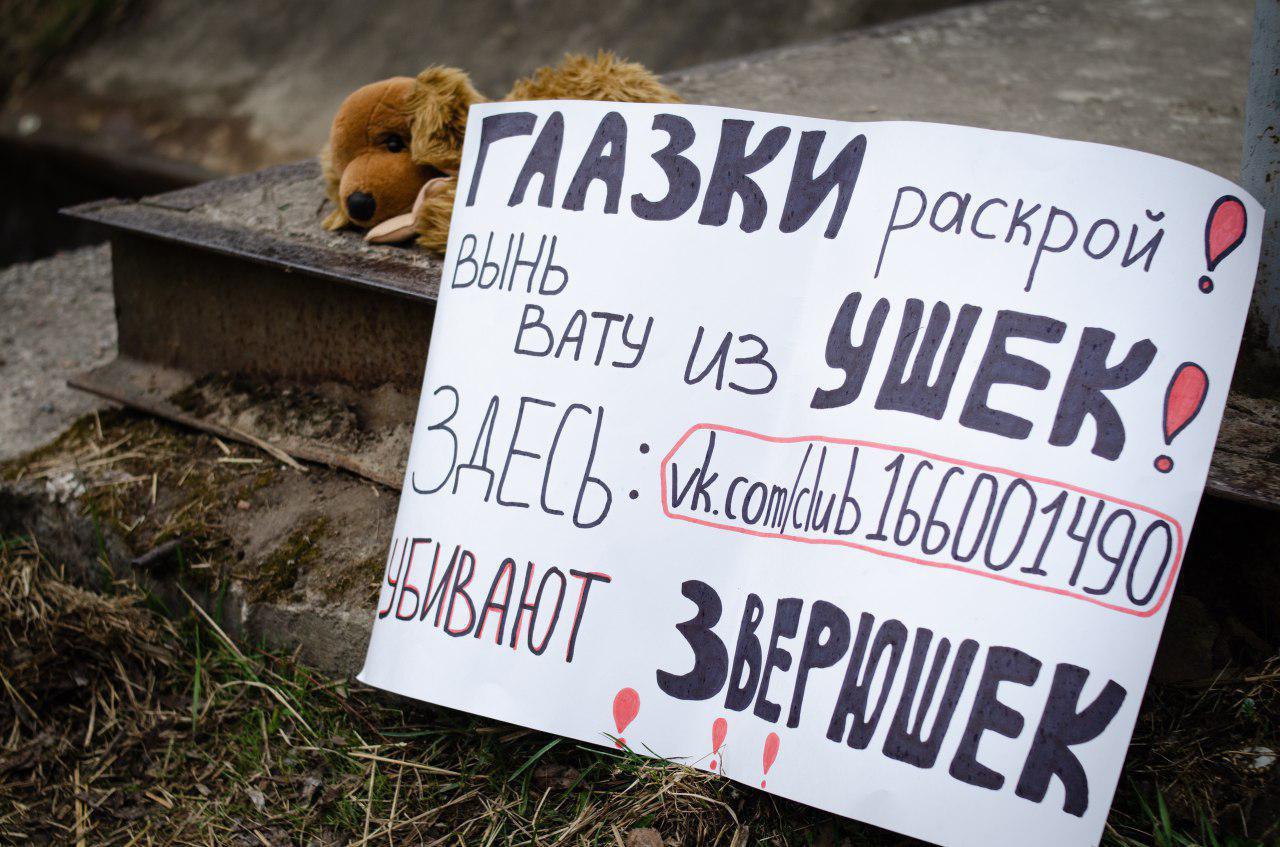 ГЛАЗКИ раскрой!
ВЫНЬ
ВАТУ ИЗ УШЕК!
ЗДЕСЬ: vk.com/club166001490
УБИВАЮТ ЗВЕРЮШЕК
!!!